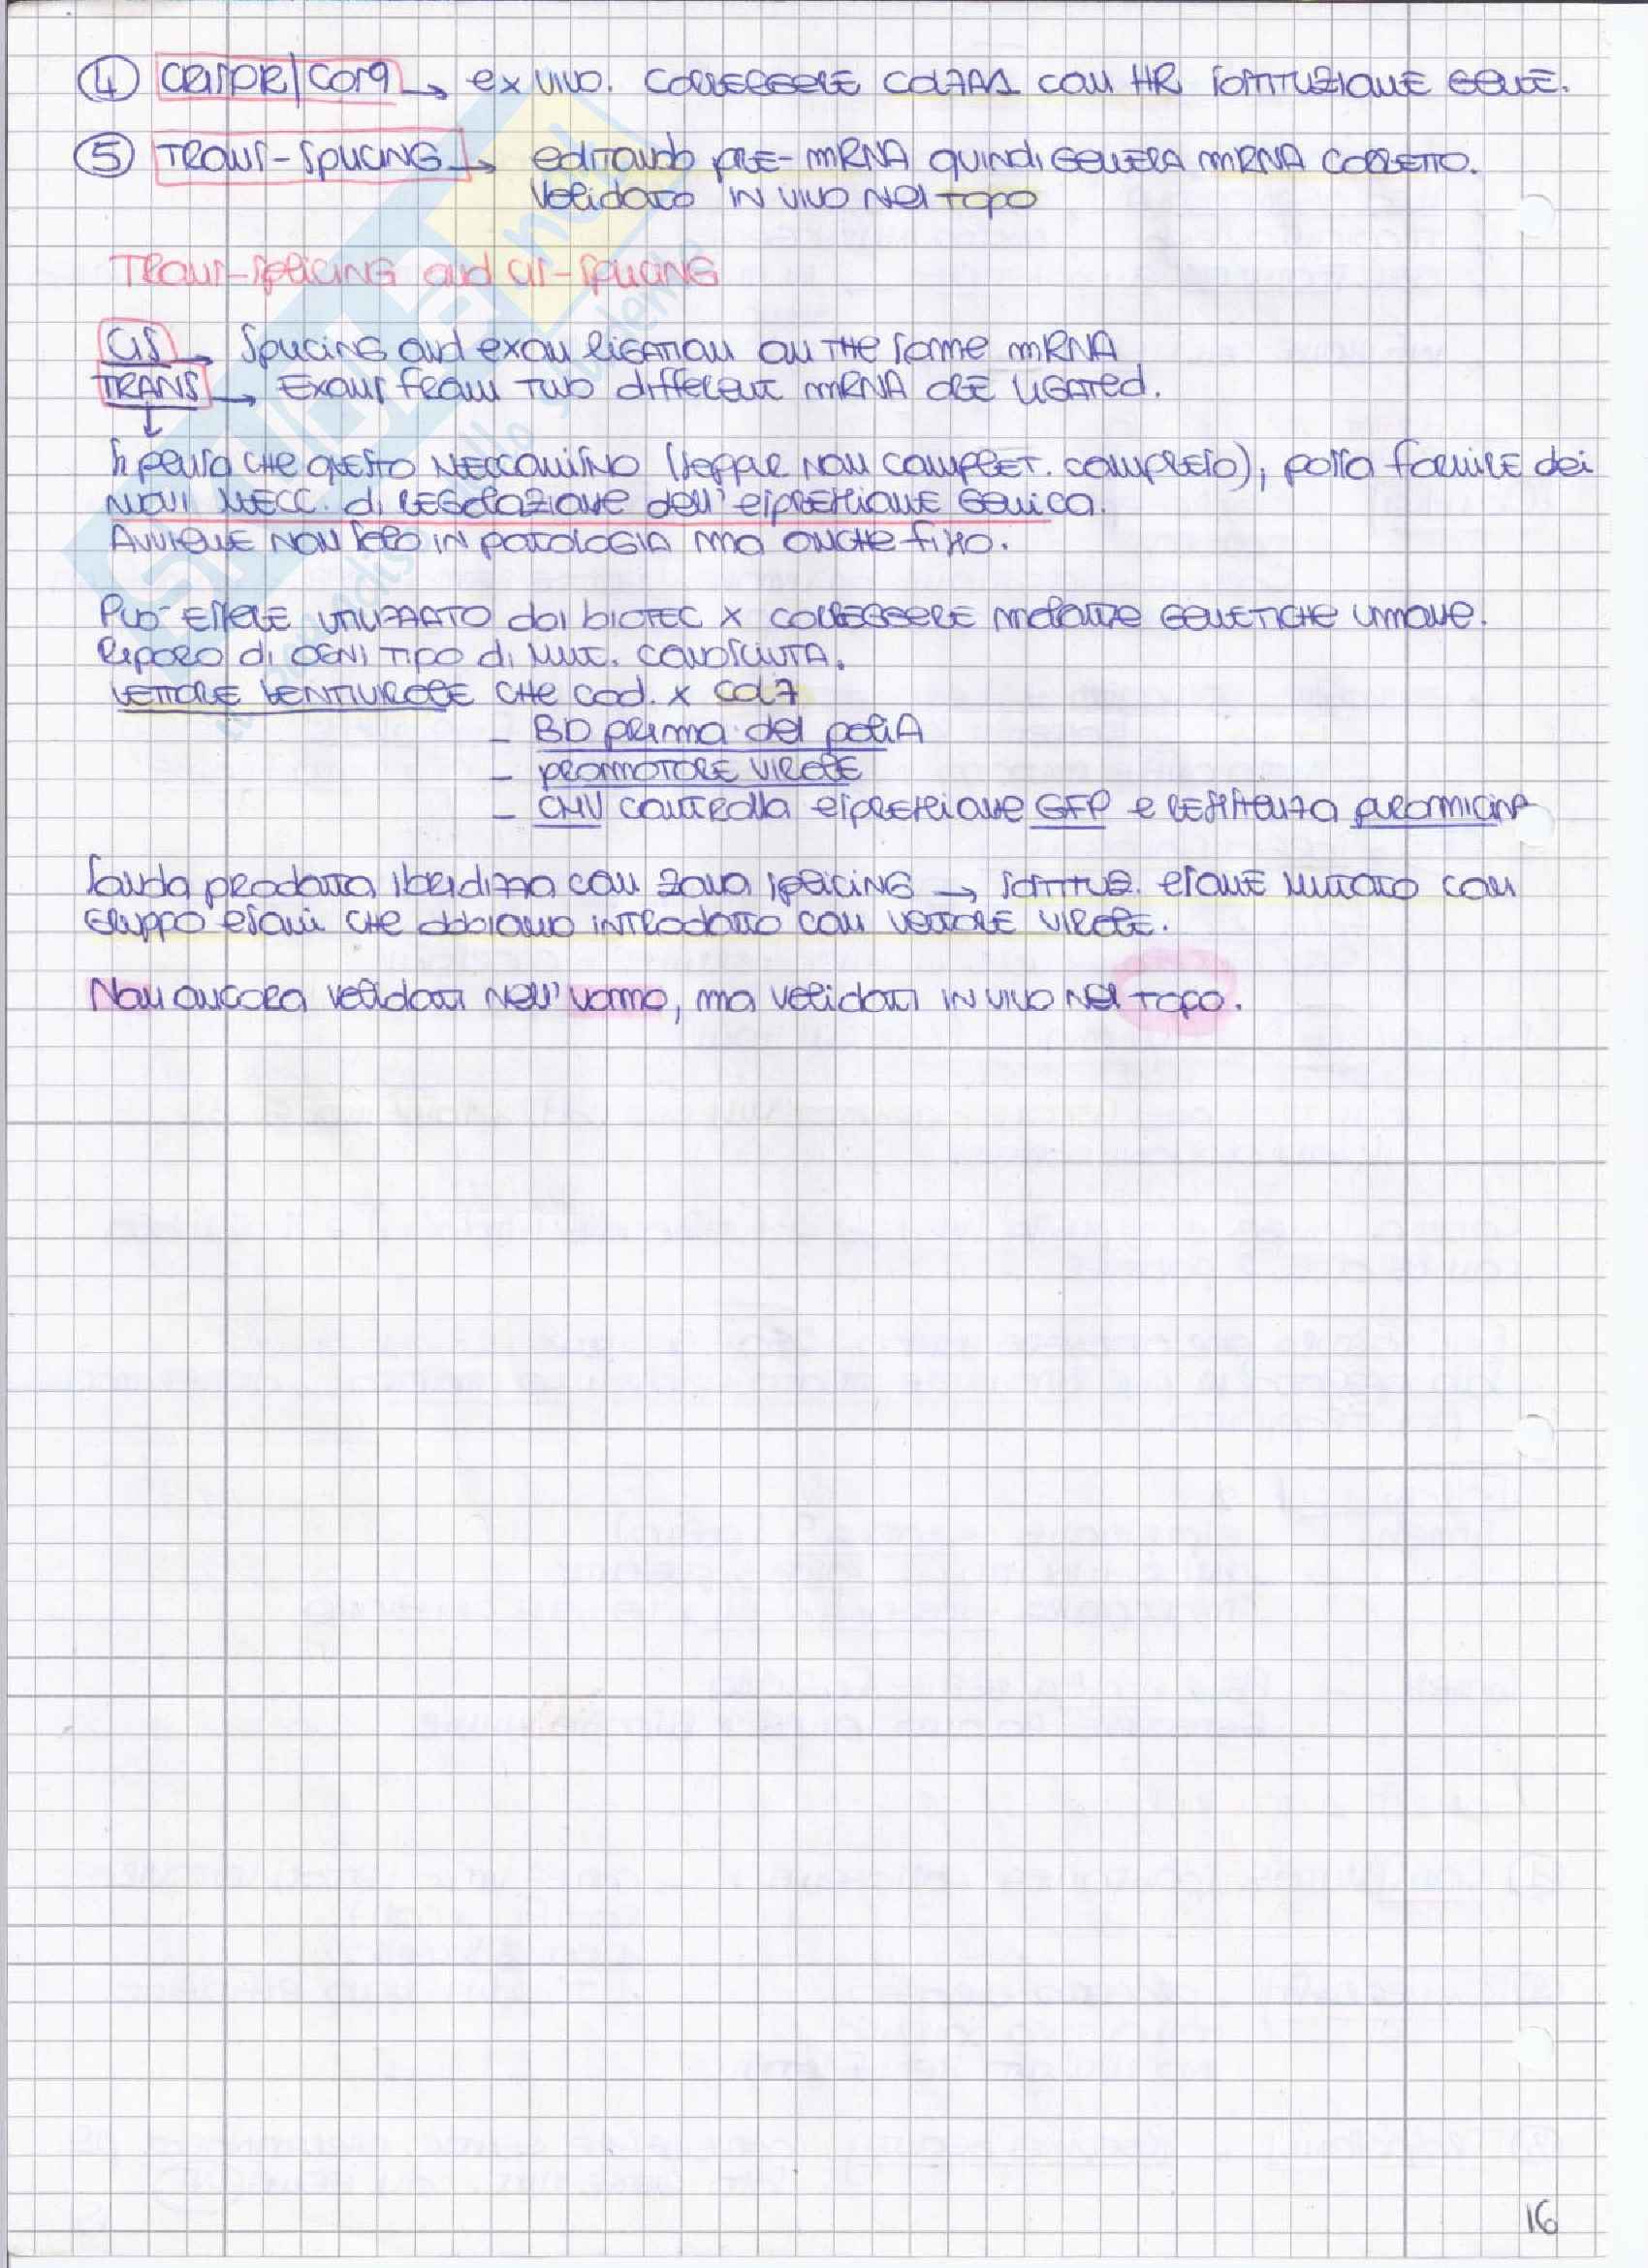 4 CRISPR/Cas9 → ex vivo. CORREGGERE COL7A1 con HR SOSTITUZIONE GENE.
5 TRANS-SPLICING → editando PRE-mRNA quindi GENERA mRNA CORRETTO.
Validato IN VIVO NEL TOPO
TRANS-SPLICING and CIS-SPLICING
CIS → SPLICING and exon LIGATION ON THE SAME mRNA
TRANS → EXONS FROM TWO different mRNA ARE LIGATED.
↓
Si pensa CHE QUESTO MECCANISMO (seppur NON COMPLET. compreso), possa fornire dei
NUOVI MECC. di REGOLAZIONE dell'ESPRESSIONE GENICA.
AVVIENE NON SOLO IN PATOLOGIA MA ANCHE FISIO.
PUO' ESSERE UTILIZZATO dai biotec x CORREGGERE malattie GENETICHE UMANE.
Riparo di OGNI TIPO di MUT. CONOSCIUTA.
VETTORE LENTIVIRALE CHE cod. x Col7
- BD prima del poliA
- PROMOTORE VIRALE
- CMV CONTROLLA ESPRESSIONE GFP e RESISTENZA puromicina
Sonda prodotta ibridizza con zona SPLICING → SOSTITUZ. ESONE MUTATO con
GRUPPO ESONI CHE abbiamo INTRODOTTO con VETTORE VIRALE.
Non ancora validati NELL'uomo, ma validati IN VIVO NEL TOPO.
16